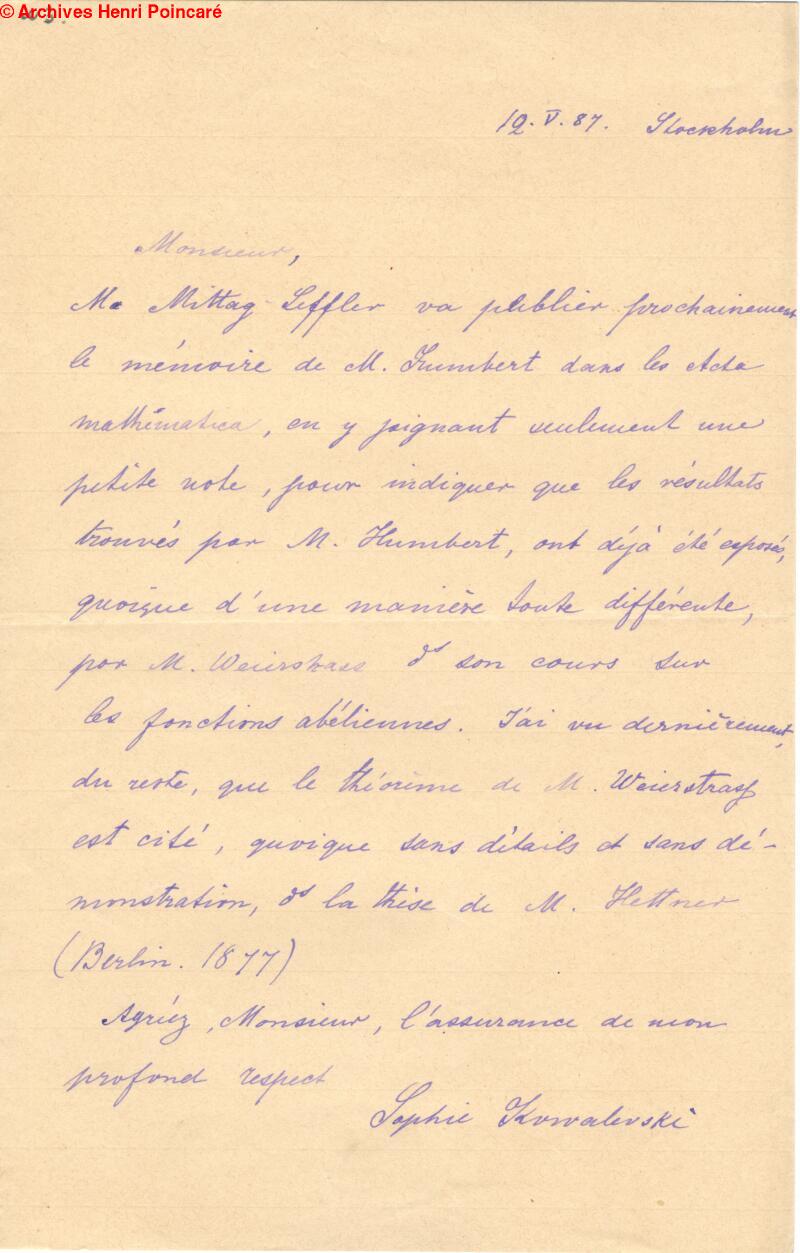 © Archives Henri Poincaré
12. V. 87. Stockholm
Monsieur,
M. Mittag-Leffler va publier prochainement
le mémoire de M. Humbert dans les Acta
mathématica, en y joignant seulement une
petite note, pour indiquer que les résultats
trouvés par M. Humbert, ont déjà été exposés,
quoique d'une manière toute différente,
par M. Weierstrass ds son cours sur
les fonctions abéliennes. J'ai vu dernièrement,
du reste, que le théorème de M. Weierstrass
est cité, quoique sans détails et sans dé-
monstration, ds la thèse de M. Hettner
(Berlin. 1877)
Agréez, Monsieur, l'assurance de mon
profond respect
Sophie Kowalevski